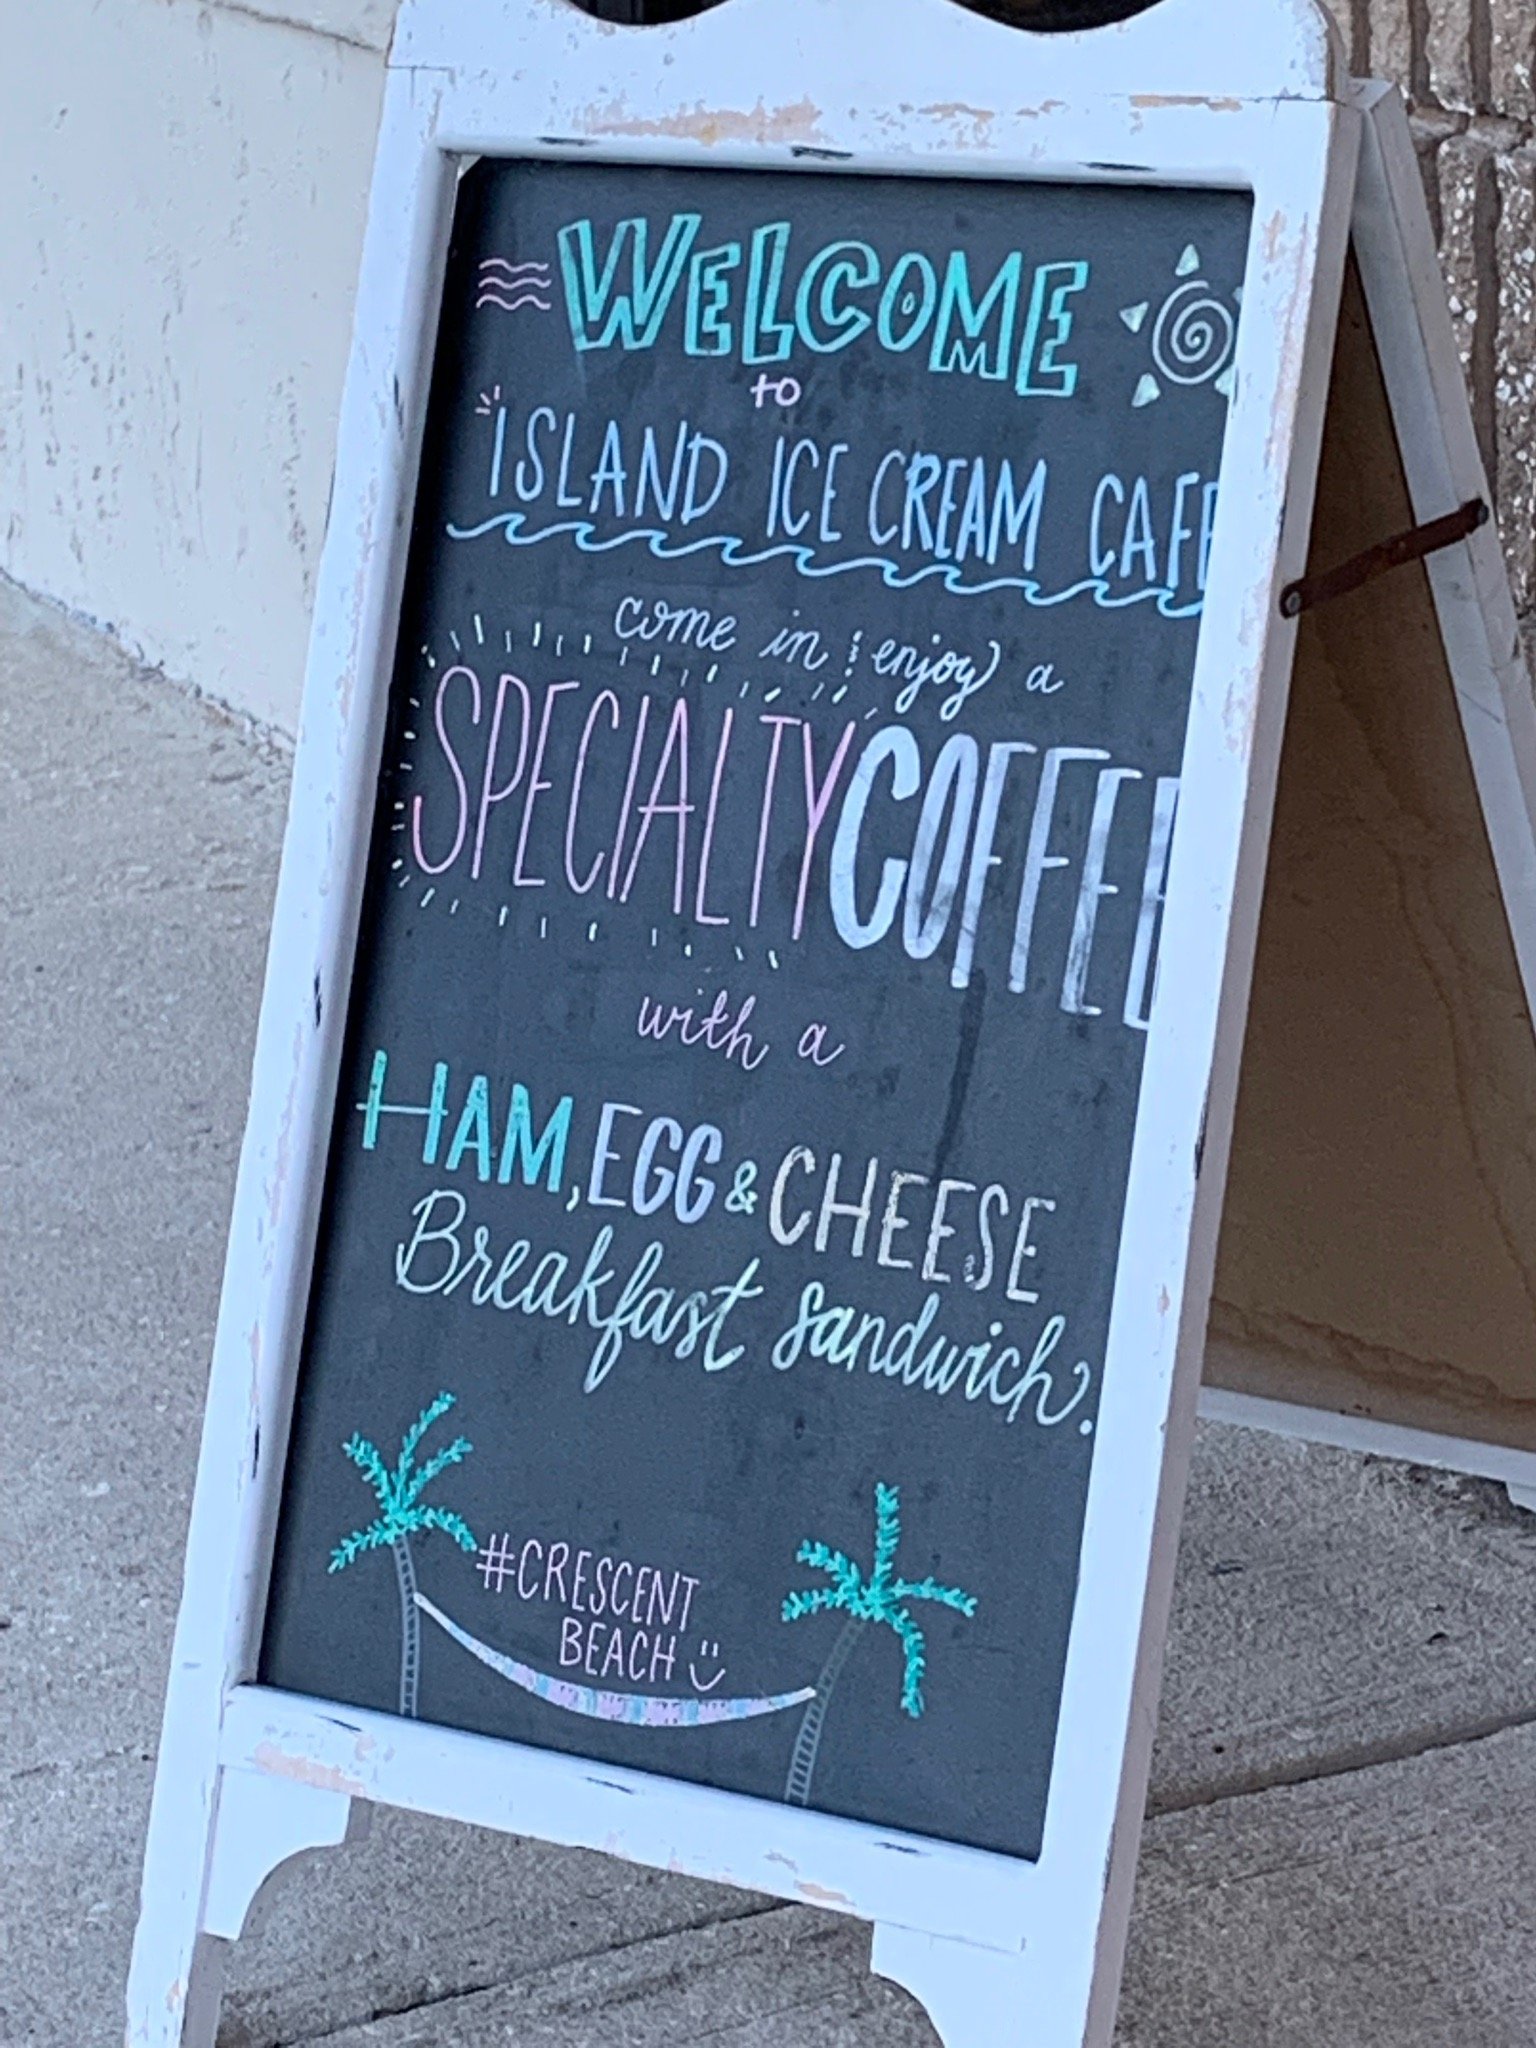 WELCOME
to
ISLAND ICE CREAM CAFE
come in & enjoy a
SPECIALTY COFFEE
with a
HAM, EGG & CHEESE
Breakfast sandwich.
#CRESCENT
BEACH